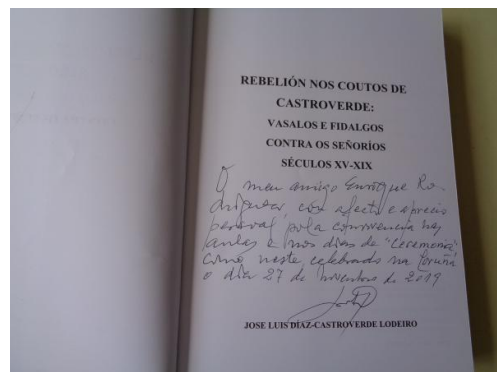 REBELIÓN NOS COUTOS DE
CASTROVERDE:
VASALOS E FIDALGOS
CONTRA OS SEÑORÍOS
SÉCULOS XV-XIX
O meu amigo Enrique Ro-
dríguez, con afecto e aprecio
persoal, pola convivencia nas
aulas e nos días de "Ceremonia",
como neste, celebrado na Coruña
o día 27 de novembro de 2019
JOSE LUIS DÍAZ-CASTROVERDE LODEIRO